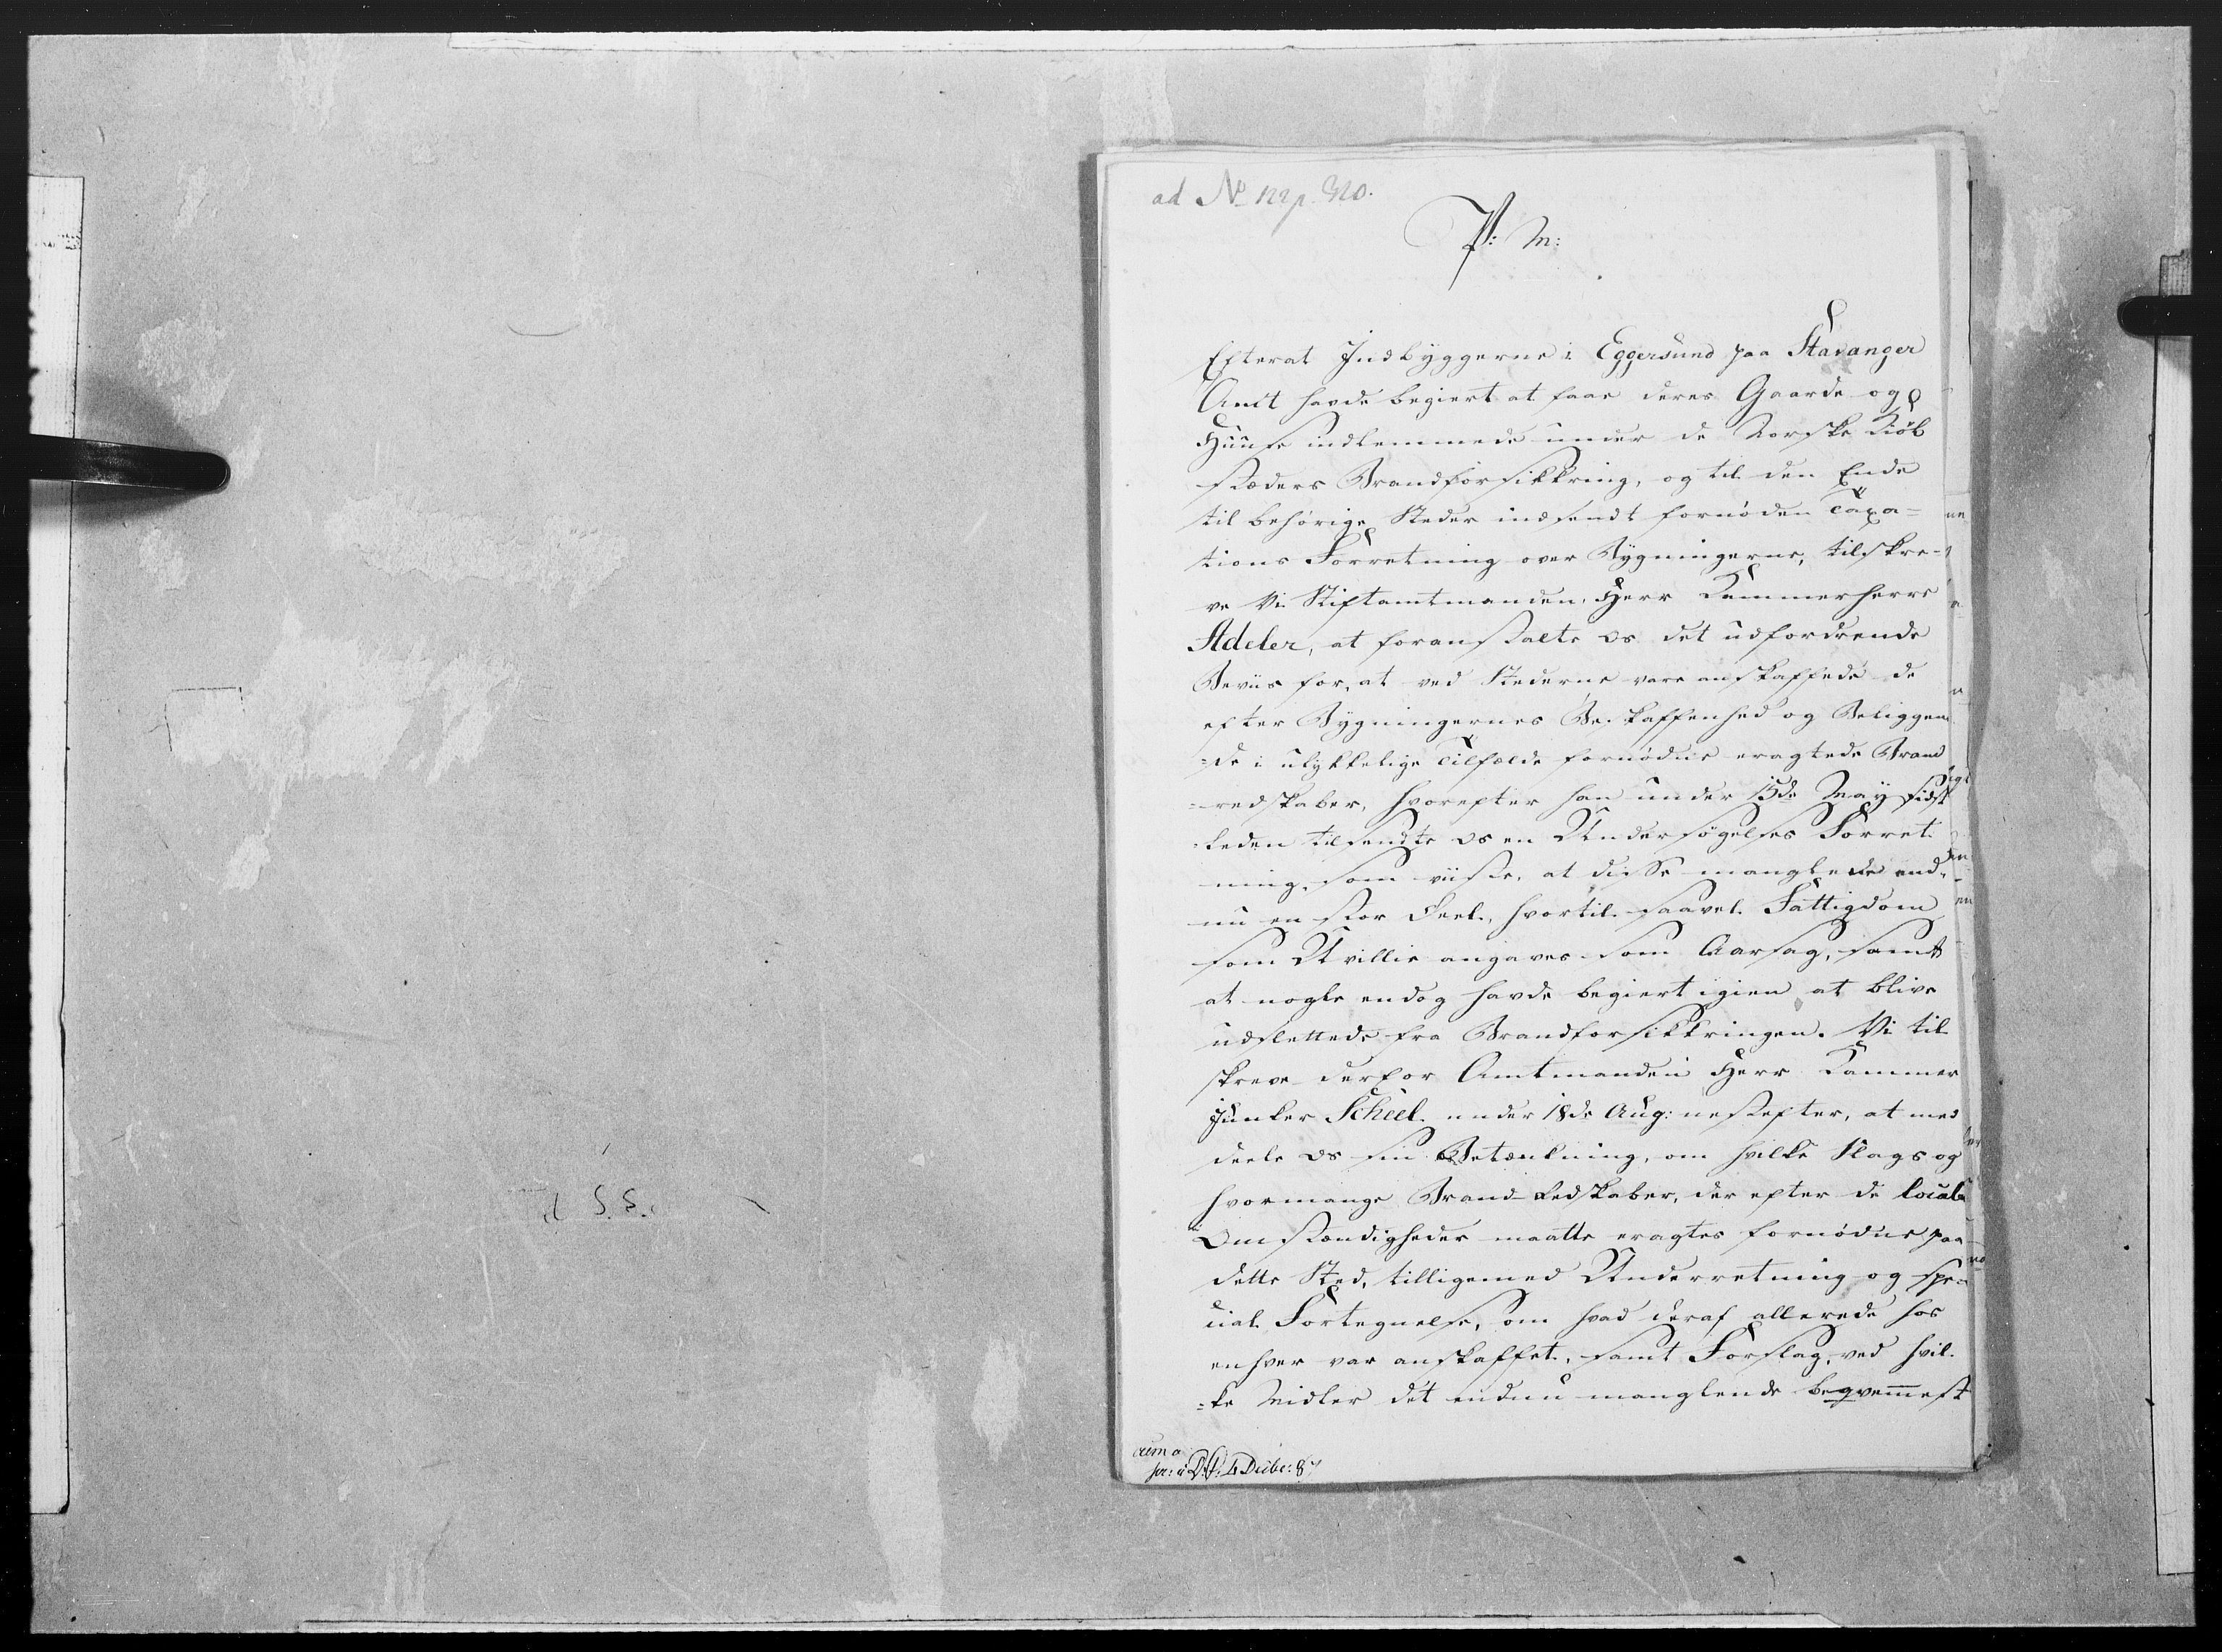 ad No 122 p 320.
P: M:
Efterat Indbyggerne i Eggersund paa Stavanger
Amt havde begiert at faae deres Gaarde og
Huuse indlemmede under de Norske Kiøb
stæders Brandforsikkring, og til den Ende
til behørige Steder indsendt fornøden Taxa-
tions Forretning over Bygningerne, tilskre-
ve Vi Stiftamtmanden, Herr Kammerherre
Adeler, at foranstalte os det udfordrende
Beviis for, at ved Stederne vare anskaffede de
efter Bygningernes Beskaffenhed og Beliggen
=de i ulykkelige Tilfælde fornødne eragtede Brand
=redskaber, hvorefter han under 15de May sidst
=leden tilsendte os en Undersøgelses Forret
ning, som viiste, at disse manglede end-
nu en stor Deel, hvortil saavel Fattigdom
som Uvillie angaves som Aarsag, samt
at nogle endog havde begiert igien at blive
udslettede fra Brandforsikkringen. Vi til
skreve derfor Amtmanden Herr Kammer
Junker Scheel under 18de Aug: nestefter, at med
deele os sin Betænkning, om hvilke Slags og
hvormange Brand-Redskaber, der efter de locale
Omstændigheder maatte eragtes fornødne paa
dette Sted, tilligemed Underretning og spe-
cial Fortegnelse, om hvad deraf allerede hos
enhver var anskaffet, samt Forslag, ved hvil-
=ke Midler det endnu manglende beqvemmest